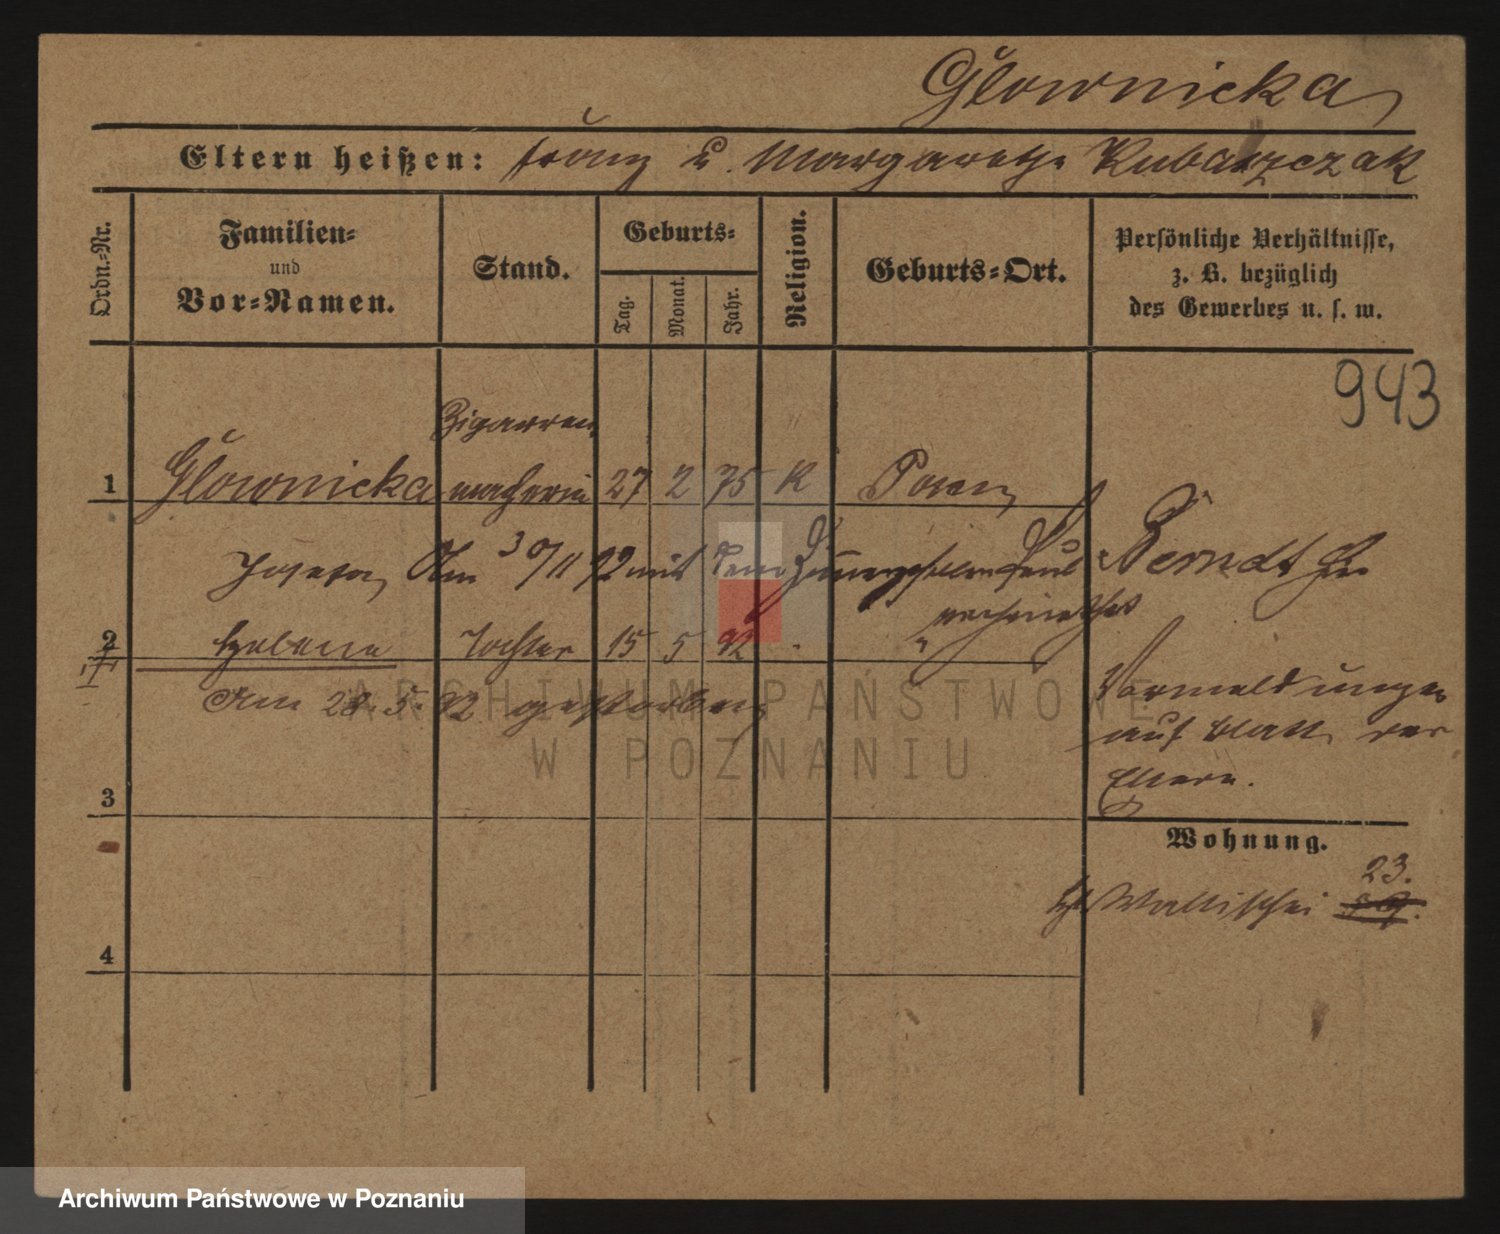 Głownicka
Eltern heißen: Franz u. Margarethe Kubarzczak
Ordn.-Nr.
Familien-
und
Vor-Namen.
Stand.
Geburts-
Tag.
Monat.
Jahr.
Religion.
Geburts-Ort.
Persönliche Verhältnisse,
z. B. bezüglich
des Gewerbes u. s. w.
943
Zigarren
1 Głownicka macherin 27 2 75 K Posen
Josefa Am 30/11 92 mit dem Paul Berndt
verheirathet
2 Helene Tochter 15 5 92 "
Am 28. 5. 92 gestorben.
Vormeldungen
auf Blatt der
Eltern.
3
Wohnung.
23.
Wallischei
4
ARCHIWUM PAŃSTWOWE
W POZNANIU
Archiwum Państwowe w Poznaniu